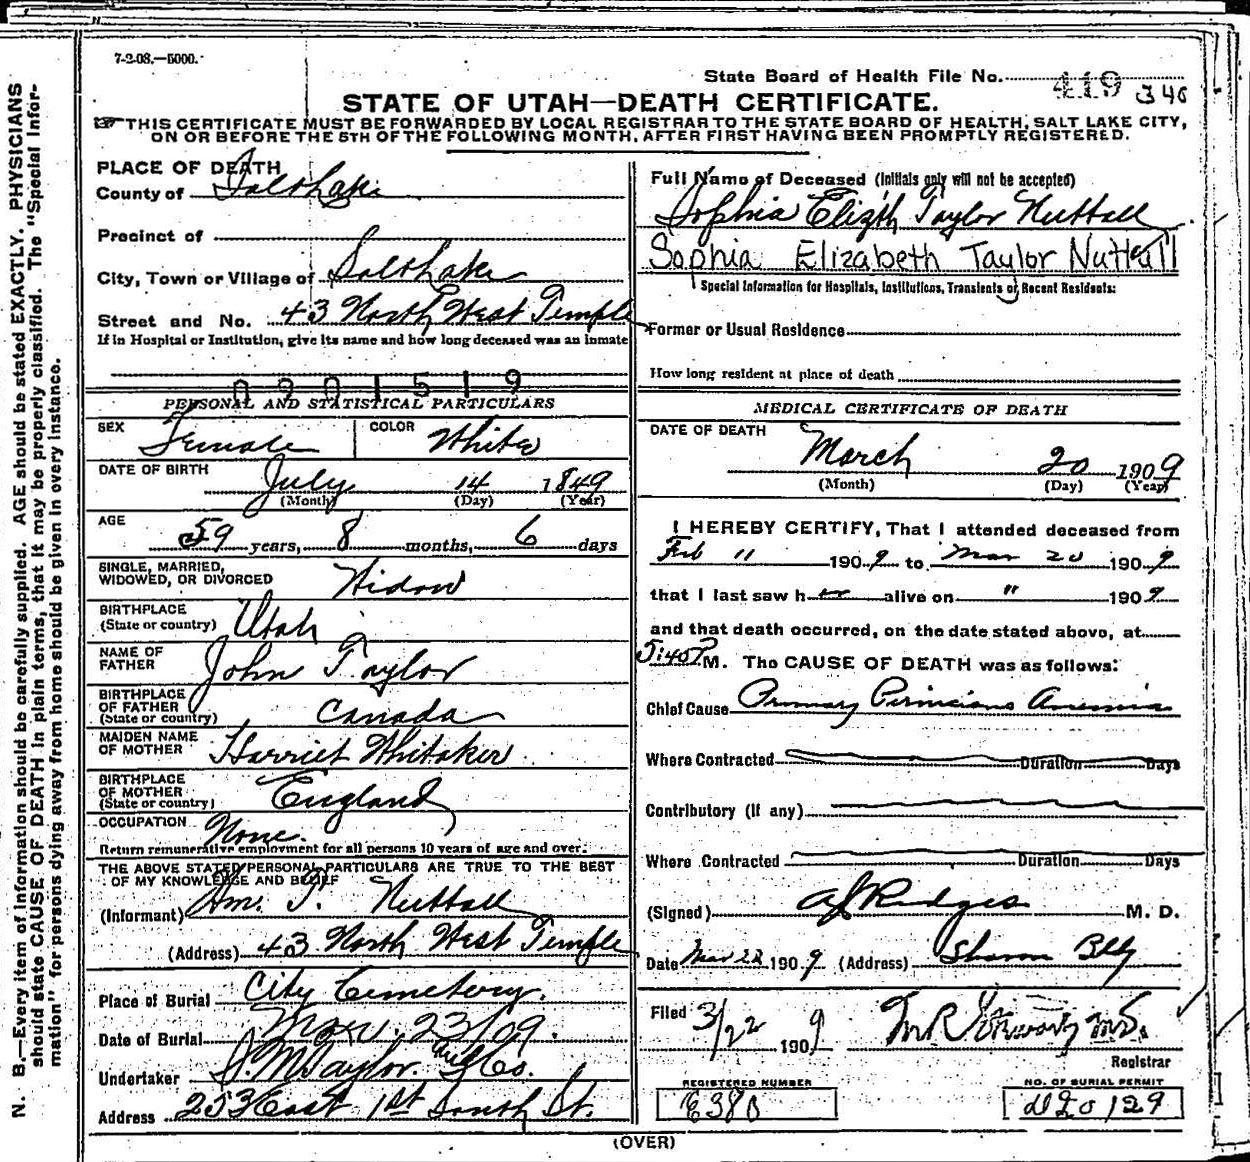 7-2-08.—5000.
State Board of Health File No. 419 346
STATE OF UTAH—DEATH CERTIFICATE.
THIS CERTIFICATE MUST BE FORWARDED BY LOCAL REGISTRAR TO THE STATE BOARD OF HEALTH, SALT LAKE CITY,
ON OR BEFORE THE 5TH OF THE FOLLOWING MONTH, AFTER FIRST HAVING BEEN PROMPTLY REGISTERED.
N. B.—Every item of information should be carefully supplied. AGE should be stated EXACTLY. PHYSICIANS
should state CAUSE OF DEATH in plain terms, that it may be properly classified. The "Special Infor-
mation" for persons dying away from home should be given in every instance.
PLACE OF DEATH
County of Salt Lake
Precinct of
City, Town or Village of Salt Lake
Street and No. 43 North West Temple
If in Hospital or Institution, give its name and how long deceased was an inmate
0201519
PERSONAL AND STATISTICAL PARTICULARS
SEX Female COLOR White
DATE OF BIRTH July 14 1849
(Month) (Day) (Year)
AGE 59 years, 8 months, 6 days
SINGLE, MARRIED,
WIDOWED, OR DIVORCED Widow
BIRTHPLACE
(State or country) Utah
NAME OF
FATHER John Taylor
BIRTHPLACE
OF FATHER
(State or country) Canada
MAIDEN NAME
OF MOTHER Harriet Whitaker
BIRTHPLACE
OF MOTHER
(State or country) England
OCCUPATION None.
Return remunerative employment for all persons 10 years of age and over.
THE ABOVE STATED PERSONAL PARTICULARS ARE TRUE TO THE BEST
OF MY KNOWLEDGE AND BELIEF
(Informant) Wm. T. Nuttall
(Address) 43 North West Temple
Place of Burial City Cemetery.
Date of Burial Mar. 23/09.
Undertaker S. M. Taylor & Co.
Address 253 East 1st South St.
Full Name of Deceased (Initials only will not be accepted)
Sophia Elizth Taylor Nuttall
Sophia Elizabeth Taylor Nuttall
Special Information for Hospitals, Institutions, Transients or Recent Residents:
Former or Usual Residence
How long resident at place of death
MEDICAL CERTIFICATE OF DEATH
DATE OF DEATH
March 20 1909
(Month) (Day) (Year)
I HEREBY CERTIFY, That I attended deceased from
Feb " 1909 to Mar 20 1909
that I last saw her alive on " 1909
and that death occurred, on the date stated above, at
5:40 P M. The CAUSE OF DEATH was as follows:
Chief Cause Primary Pernicious Anemia
Where Contracted Duration Days
Contributory (if any)
Where Contracted Duration Days
(Signed) M. D.
Date Mar 22 1909 (Address) Sharon Bldg
Filed 3/22 1909
Registrar
REGISTERED NUMBER
E380
NO. OF BURIAL PERMIT
d20129
(OVER)